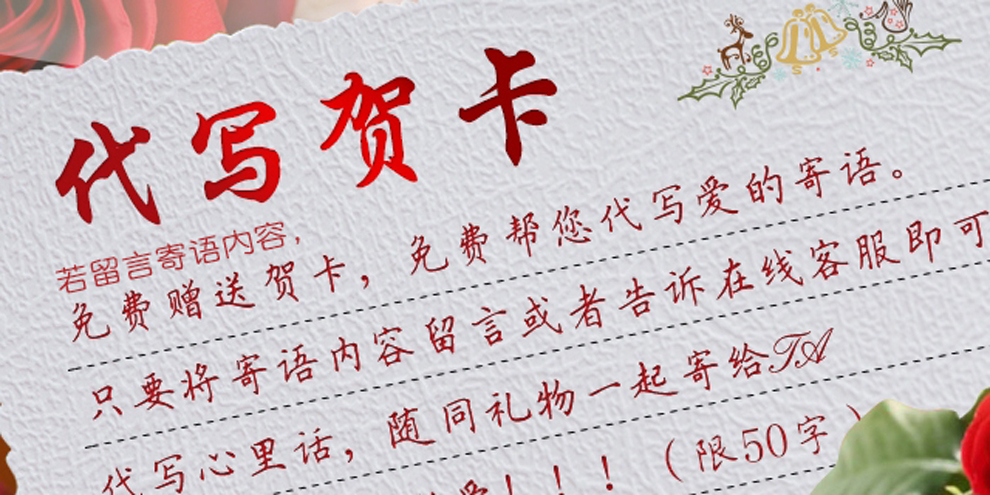 代写贺卡
若留言寄语内容，
免费赠送贺卡，免费帮您代写爱的寄语。
只要将寄语内容留言或者告诉在线客服即可
代写心里话，随同礼物一起寄给TA
！！！（限50字）